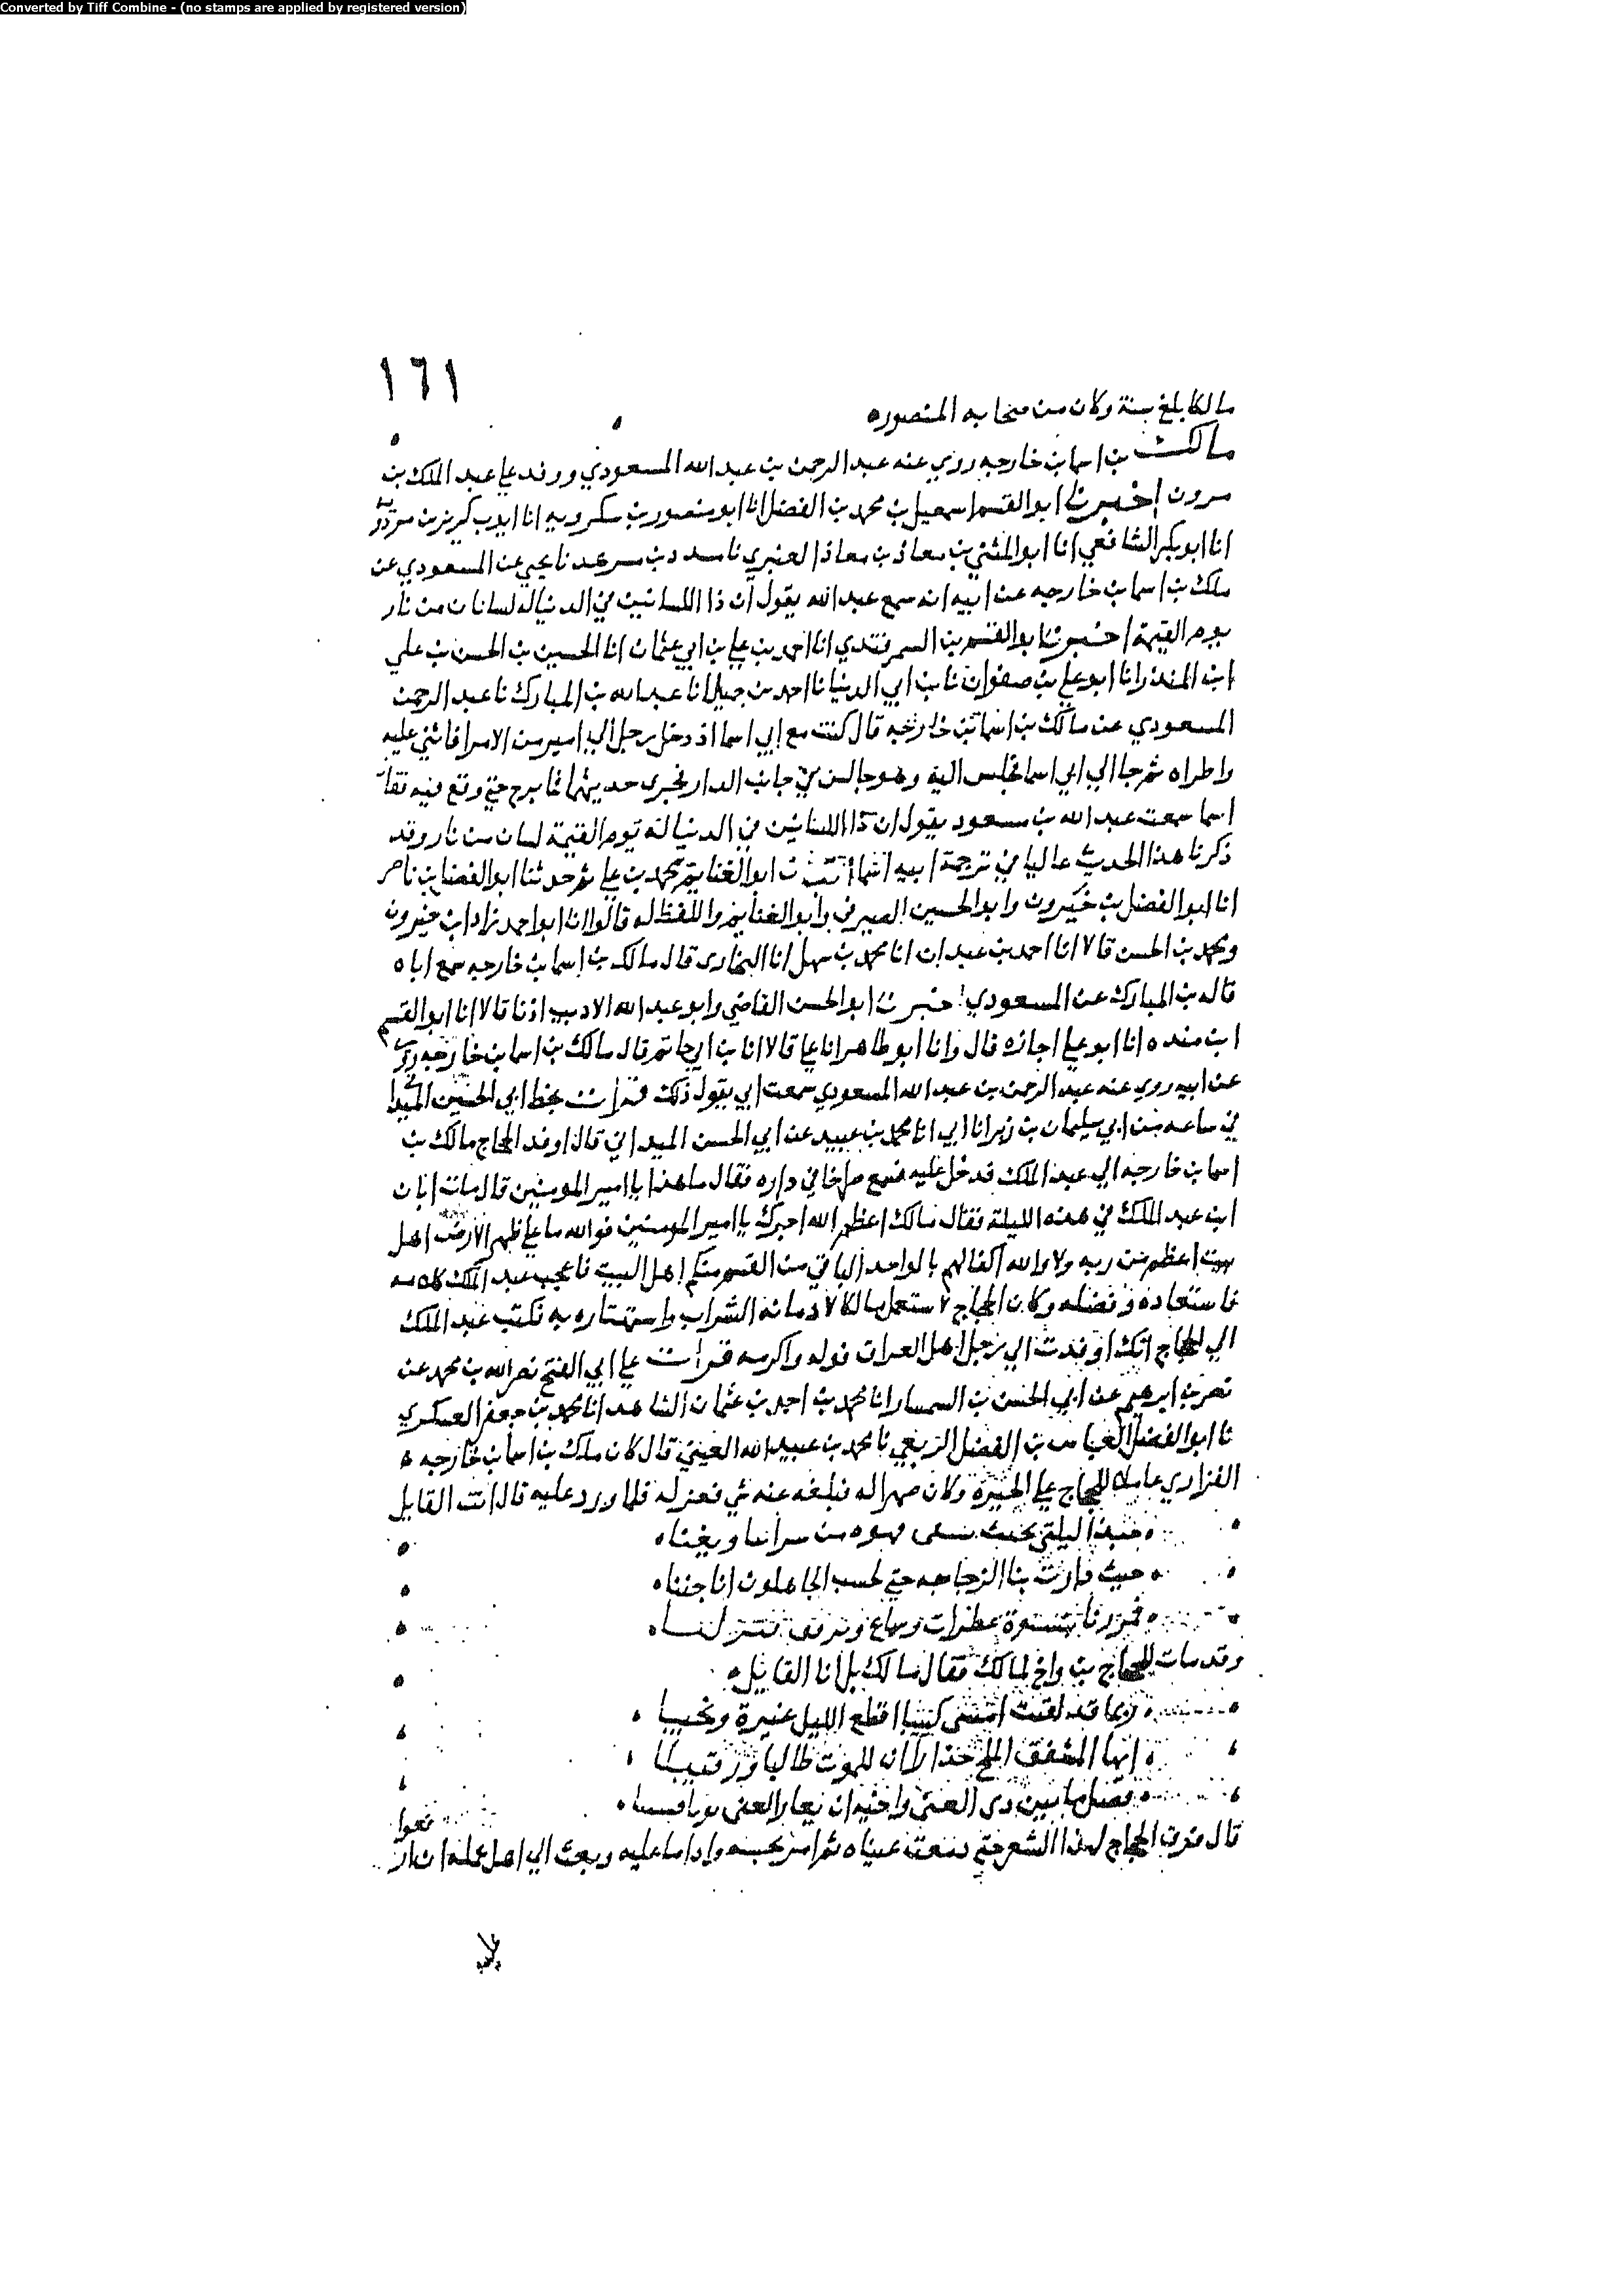 Converted by Tiff Combine - (no stamps are applied by registered version)
١٦١
مالكا بلغ سنة وكان من صحابه المنصوره
مالك بن اسما بن خارجه روي عنه عبد الرحمن بن عبد الله المسعودي ووفد علي عبد الملك بن
مرون اخبرنا ابو القسم اسمعيل بن محمد بن الفضل انا ابو منصور بن سكرويه انا ابو بكر بن مردو
انا ابو بكر الشافعي انا ابو المثني بن معاذ بن معاذ العنبري نا مسدد بن مسرهد نا يحي عن المسعودي عن
ملك بن اسما بن خارجه عن ابيه انه سمع عبد الله يقول ان ذا اللسانين في الدنيا له لسانان من نار
يوم القيمة اخبرنا ابو القسم بن السمرقندي انا احمد بن علي بن ابي عثمان انا الحسين بن الحسن بن علي
ابن المنذر انا ابو علي بن صفوان نا بن ابي الدنيا نا احمد بن جميل انا عبد الله بن المبارك نا عبد الرحمن
المسعودي عن مالك بن اسما بن خارجه قال كنت مع ابي اسما اذ دخل رجل الي امير من الامرا فاثني عليه
واطراه ثم جا الي ابي اسما فجلس اليه وهو جالس في جانب الدار فجرى حديثهما فما برح حتي وقع فيه فقا
اسما سمعت عبد الله بن مسعود يقول ان ذا اللسانين في الدنيا له يوم القيمة لسان من نار وقد
ذكرنا هذا الحديث عاليا في ترجمة ابيه اسما انبانا ابو الغنايم محمد بن علي ثم حدثنا ابو الفضل بن ناصر
انا ابو الفضل بن خيرون وابو الحسين الصيرفي وابو الغنايم واللفظ له قالوا انا ابو احمد زاد ابن خيرون
ومحمد بن الحسن قالا انا احمد بن عبدان انا محمد بن سهل انا البخارى قال مالك بن اسما بن خارجه سمع اباه
قاله بن المبارك عن المسعودي اخبرنا ابو الحسن القاضي وابو عبد الله الاديب اذنا قالا انا ابو القسم
ابن منده انا ابو علي اجازه قال وانا ابو طاهر انا علي قالا انا بن ابي حاتم قال مالك بن اسما بن خارجه روى
عن ابيه روي عنه عبد الرحمن بن عبد الله المسعودي سمعت ابي يقول ذلك قرات بخط ابي الحسين الميدا
في ساعه من ابي سليمان بن زبر انا ابي انا محمد بن عبيد عن ابي الحسن الميداني قال اوفد الحجاج مالك بن
اسما بن خارجه الي عبد الملك فدخل عليه فسمع صراخا في داره فقال ما هذا يا امير المومنين قال مات ابان
ابن عبد الملك في هذه الليلة فقال مالك اعظم الله اجرك يا امير المومنين فوالله ما علي ظهر الارض اهل
بيت اعظم من ربه ولا والله اكفا لهم بالواحد الباقي من القسم منكم اهل البيت فاعجب عبد الملك كلامه
فاستعاده وفضله وكان الحجاج لا ستعمل مالكا لادمانه الشراب واستهتاره به فكتب عبد الملك
الي الحجاج انك اوفدت الي رجل اهل العراق فوله واكرمه قرات علي ابي الفتح نصر الله بن محمد عن
نصر بن ابرهيم عن ابي الحسن بن السمسار انا محمد بن احمد بن عثمان الشاهد انا محمد بن جعفر العسكري
نا ابو الفضل العباس بن الفضل الربعي نا محمد بن عبيد الله العتبي قال كان ملك بن اسما بن خارجه
الفزاري عاملا للحجاج علي الحيرة وكان صهرا له فبلغه عنه شي فعزله فلما ورد عليه قال انت القايل
حبذا ليلتي بحيث نسقى قهوه من شرابنا ونغنا
حيث دارت بنا الزجاجه حتي لحسب الجاهلون انا جننا
فمررنا بنسوة عطرات وسماع وقرقف فنزلنا
وقد مات للحجاج بن واخ لمالك فقال مالك بل انا القايل
ربما قد لقيت امسى كييبا اقطع الليل عبرة ونحيبا
ايها المشفق الملح حذارا ان للموت طالبا ورقيبا
فصل ما بين دى الغنى واخيه ان يعار الغنى ثوبا قشيبا
قال فرق الحجاج لهذا الشعر حتي دمعت عيناه ثم امر بحبسه واداما عليه وبعث الي اهل عمله ان ار
فعوا